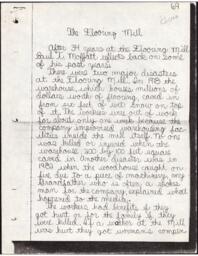 69
The Flooring Mill
After 34 years at the Flooring Mill
Paul L. Moffatt reflects back on some
of his past years.
There were two major disasters
at the Flooring Mill. In 1985 the
warehouse, which houses millions of
dollars worth of flooring, caved in
from six feet of wet snow on top
of it. The workers were out of work
for only one week because the
company improvised warehousing fac-
ilities inside the mill itself. No one
was killed or injured when the
warehouse 300 by 100 feet square
caved in. Another disaster was in
1983 when the woodhouse caught on
fire due to a piece of machinery. My
Grandfather who is often a spokes
man for the company, explained what
happened to the media.
The workers had benefits if they
got hurt or for the family if they
were killed. If a worker at the Mill
was hurt they got workman's compen